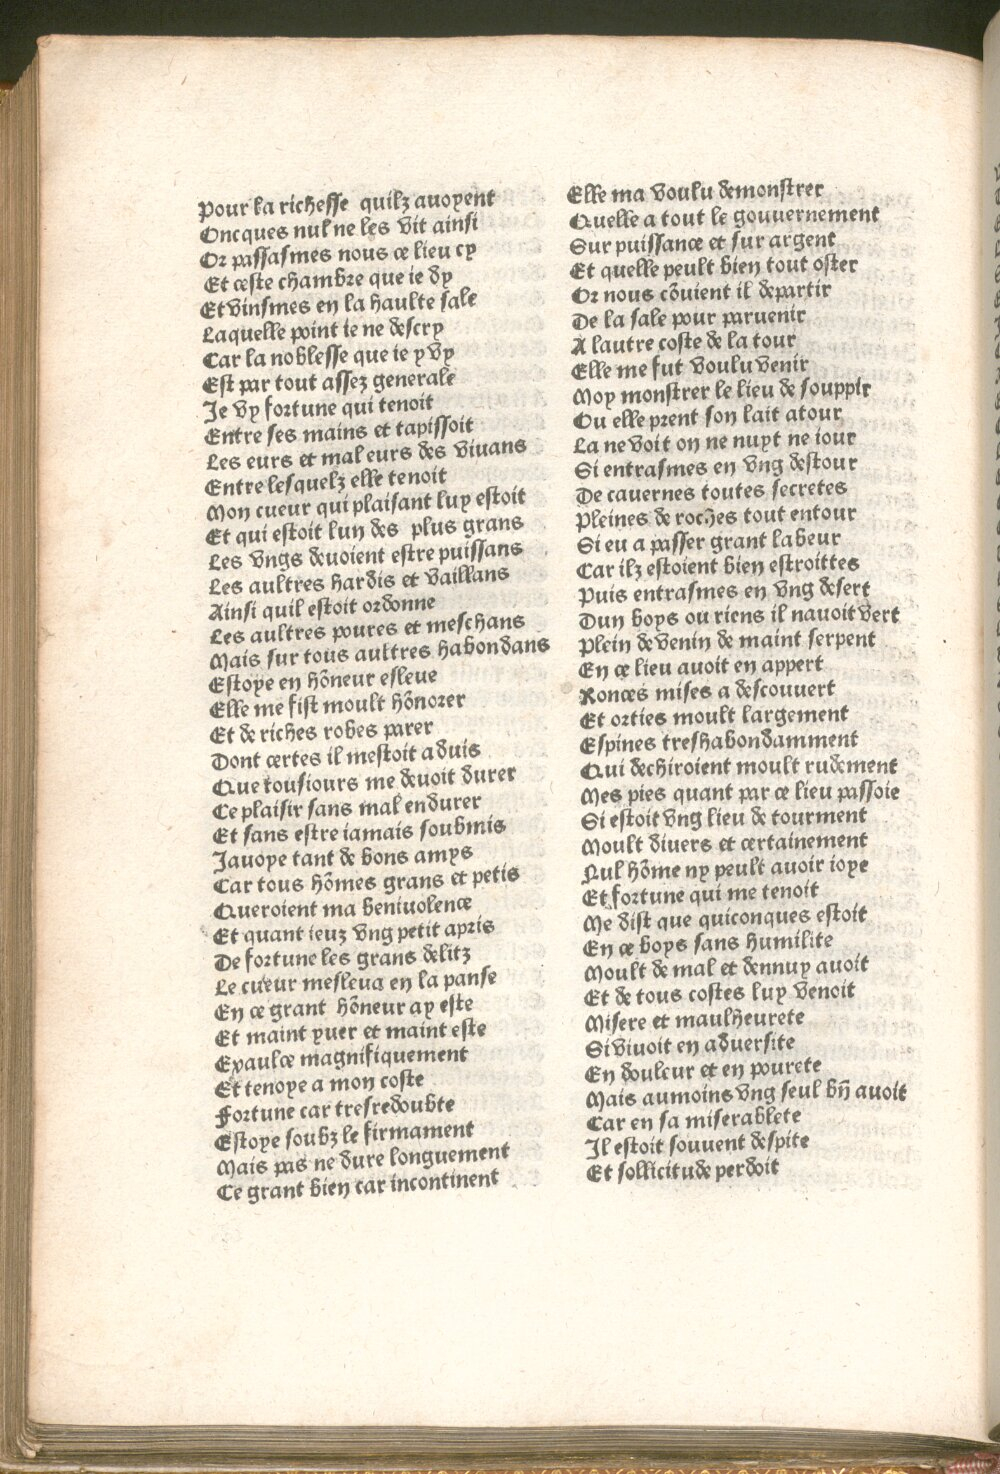 Pour la richesse quilz auoyent
Oncques nul ne les vit ainsi
Or passasmes nous ce lieu cy
Et ceste chambre que ie dy
Et vinsmes en la haulte sale
Laquelle point ie ne descry
Car la noblesse que ie y vy
Est par tout assez generale
Je vy fortune qui tenoit
Entre ses mains et tapissoit
Les eurs et mal eurs des viuans
Entre lesquelz elle tenoit
Mon cueur qui plaisant luy estoit
Et qui estoit lun des plus grans
Les vngs deuoient estre puissans
Les aultres hardis et vaillans
Ainsi quil estoit ordonne
Les aultres poures et meschans
Mais sur tous aultres habondans
Estoye en hõneur esleue
Elle me fist moult hõnorer
Et de riches robes parer
Dont certes il mestoit aduis
Que tousiours me deuoit durer
Ce plaisir sans mal endurer
Et sans estre iamais soubmis
Jauoye tant de bons amys
Car tous hõmes grans et petis
Queroient ma beniuolence
Et quant ieuz vng petit apris
De fortune les grans delitz
Le cueur mesleua en la panse
En ce grant hõneur ay este
Et maint yuer et maint este
Exaulce magnifiquement
Et tenoye a mon coste
Fortune car tresredoubte
Estoye soubz le firmament
Mais pas ne dure longuement
Ce grant bien car incontinent
Elle ma voulu demonstrer
Quelle a tout le gouuernement
Sur puissance et sur argent
Et quelle peult bien tout oster
Or nous cõuient il departir
De la sale pour paruenir
A lautre coste de la tour
Elle me fut voulu venir
Moy monstrer le lieu de souppir
Ou elle prent son lait atour
La ne voit on ne nuyt ne iour
Si entrasmes en vng destour
De cauernes toutes secretes
Pleines de roches tout entour
Si eu a passer grant labeur
Car ilz estoient bien estroittes
Puis entrasmes en vng desert
Dun boys ou riens il nauoit vert
Plein de venin de maint serpent
En ce lieu auoit en appert
Ronces mises a descouuert
Et orties moult largement
Espines treshabondamment
Qui dechiroient moult rudement
Mes pies quant par ce lieu passoie
Si estoit vng lieu de tourment
Moult diuers et certainement
Nul hõme ny peult auoir ioye
Et fortune qui me tenoit
Me dist que quiconques estoit
En ce boys sans humilite
Moult de mal et dennuy auoit
Et de tous costes luy venoit
Misere et maulheurete
Si viuoit en aduersite
En douleur et en pourete
Mais aumoins vng seul bñ auoit
Car en sa miserablete
Il estoit souuent despite
Et sollicitude perdoit